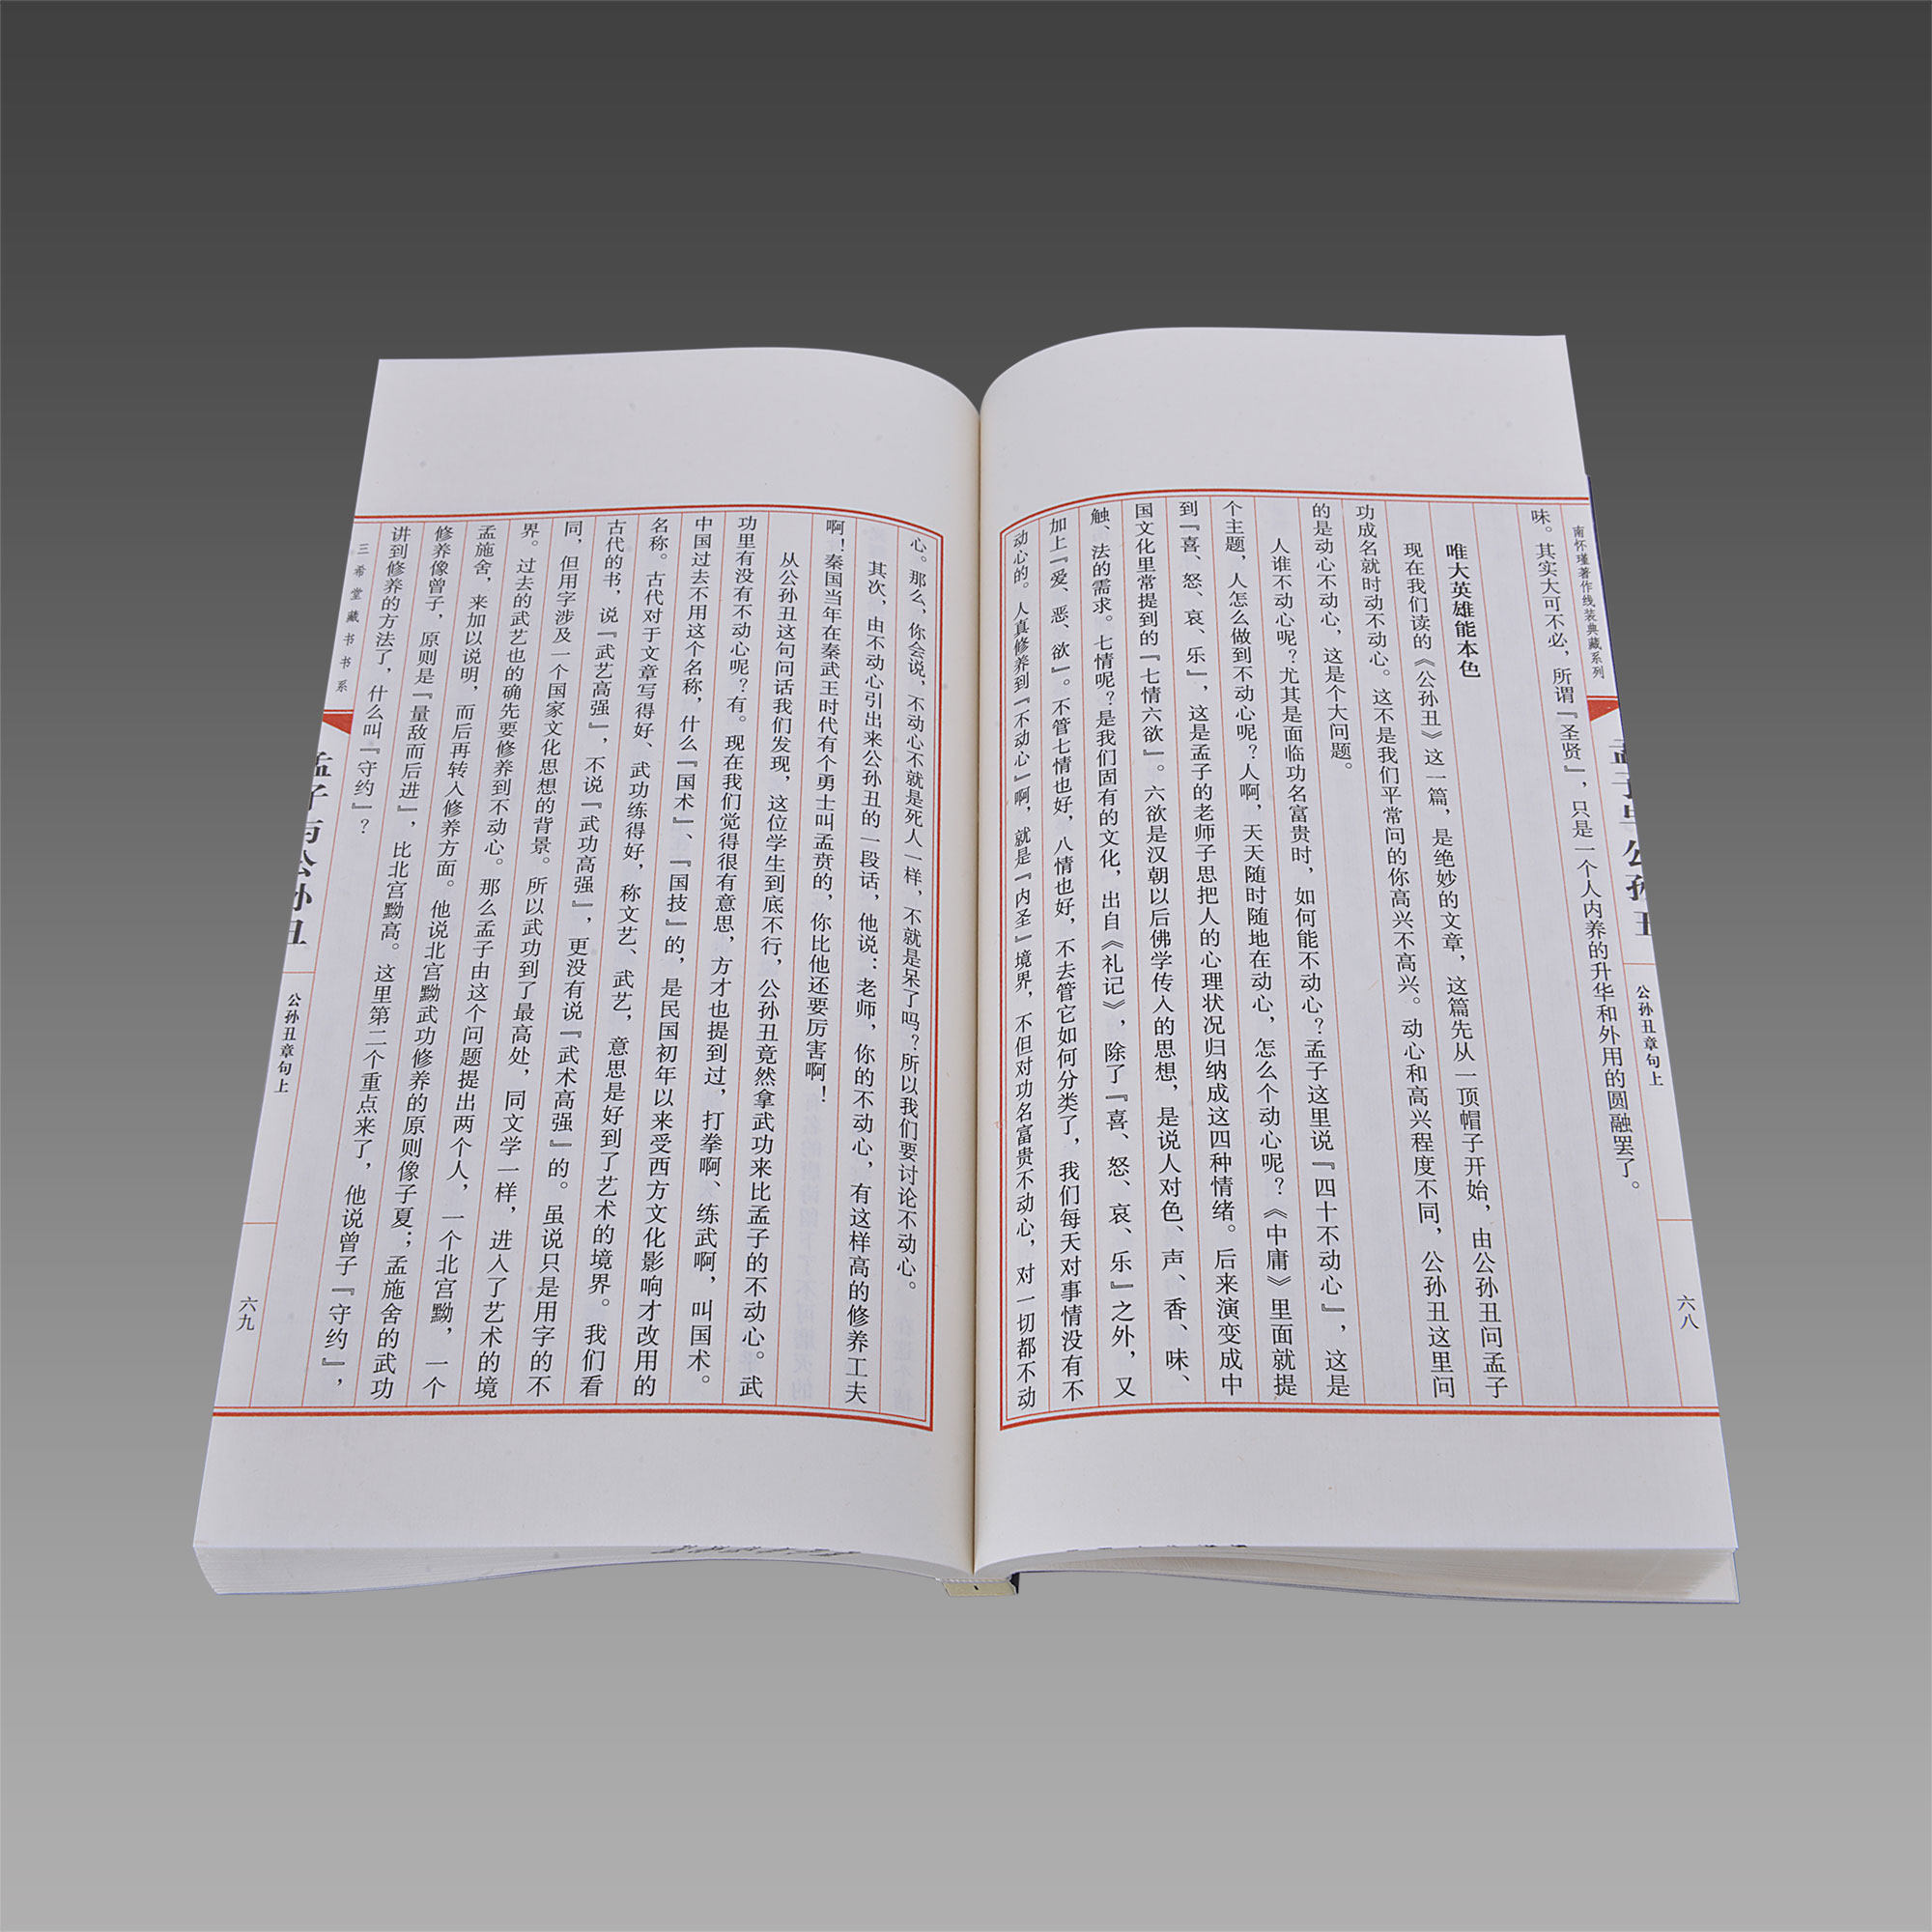 南怀瑾著作线装典藏系列
孟子与公孙丑
公孙丑章句上
六八
味。其实大可不必，所谓『圣贤』，只是一个人内养的升华和外用的圆融罢了。
唯大英雄能本色
现在我们读的《公孙丑》这一篇，是绝妙的文章，这篇先从一顶帽子开始，由公孙丑问孟子
功成名就时动不动心。这不是我们平常问的你高兴不高兴。动心和高兴程度不同，公孙丑这里问
的是动心不动心，这是个大问题。
人谁不动心呢？尤其是面临功名富贵时，如何能不动心？孟子这里说『四十不动心』，这是
个主题，人怎么做到不动心呢？人啊，天天随时随地在动心，怎么个动心呢？《中庸》里面就提
到『喜、怒、哀、乐』，这是孟子的老师子思把人的心理状况归纳成这四种情绪。后来演变成中
国文化里常提到的『七情六欲』。六欲是汉朝以后佛学传入的思想，是说人对色、声、香、味、
触、法的需求。七情呢？是我们固有的文化，出自《礼记》，除了『喜、怒、哀、乐』之外，又
加上『爱、恶、欲』。不管七情也好，八情也好，不去管它如何分类了，我们每天对事情没有不
动心的。人真修养到『不动心』啊，就是『内圣』境界，不但对功名富贵不动心，对一切都不动
心。那么，你会说，不动心不就是死人一样，不就是呆了吗？所以我们要讨论不动心。
其次，由不动心引出来公孙丑的一段话，他说：老师，你的不动心，有这样高的修养工夫
啊！秦国当年在秦武王时代有个勇士叫孟贲的，你比他还要厉害啊！
从公孙丑这句问话我们发现，这位学生到底不行，公孙丑竟然拿武功来比孟子的不动心。武
功里有没有不动心呢？有。现在我们觉得很有意思，方才也提到过，打拳啊、练武啊，叫国术。
中国过去不用这个名称，什么『国术』、『国技』的，是民国初年以来受西方文化影响才改用的
名称。古代对于文章写得好、武功练得好，称文艺、武艺，意思是好到了艺术的境界。我们看
古代的书，说『武艺高强』，不说『武功高强』，更没有说『武术高强』的。虽说只是用字的不
同，但用字涉及一个国家文化思想的背景。所以武功到了最高处，同文学一样，进入了艺术的境
界。过去的武艺也的确先要修养到不动心。那么孟子由这个问题提出两个人，一个北宫黝，一个
孟施舍，来加以说明，而后再转入修养方面。他说北宫黝武功修养的原则像子夏；孟施舍的武功
修养像曾子，原则是『量敌而后进』，比北宫黝高。这里第二个重点来了，他说曾子『守约』，
讲到修养的方法了，什么叫『守约』？
三希堂藏书书系
孟子与公孙丑
公孙丑章句上
六九